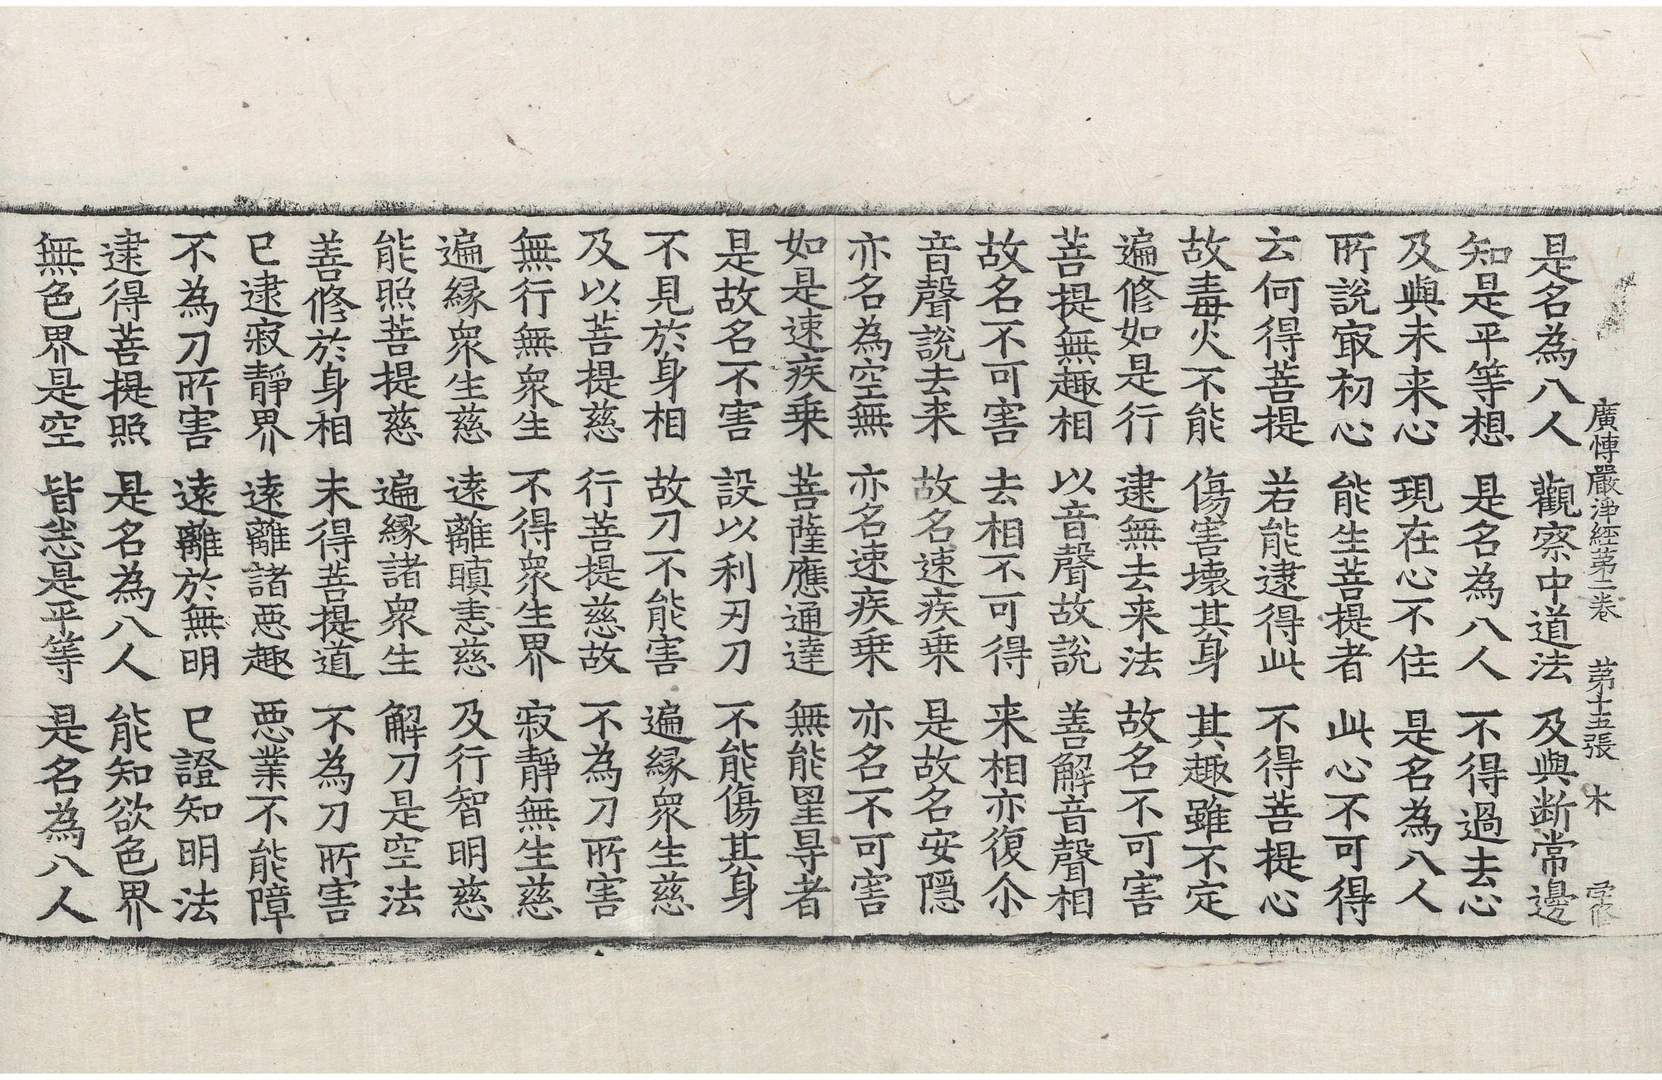 廣愽嚴浄經第二卷 第十五張 木
是名為八人 觀察中道法 及與断常邊
知是平等想 是名為八人 不得過去心
及與未来心 現在心不住 是名為八人
所說㝡初心 能生菩提者 此心不可得
云何得菩提 若能逮得此 不得菩提心
故毒火不能 傷害壞其身 其趣雖不定
遍修如是行 逮無去来法 故名不可害
菩提無趣相 以音聲故說 善解音聲相
故名不可害 去相不可得 来相亦復尒
音聲說去来 故名速疾乗 是故名安隱
亦名為空無 亦名速疾乗 亦名不可害
如是速疾乗 菩薩應通達 無能罣㝵者
是故名不害 設以利刃刀 不能傷其身
不見於身相 故刀不能害 遍縁衆生慈
及以菩提慈 行菩提慈故 不為刀所害
無行無衆生 不得衆生界 寂靜無生慈
遍縁衆生慈 遠離瞋恚慈 及行智明慈
能照菩提慈 遍縁諸衆生 解刀是空法
善修於身相 未得菩提道 不為刀所害
已逮寂靜界 遠離諸惡趣 惡業不能障
不為刀所害 遠離於無明 已證知明法
逮得菩提照 是名為八人 能知欲色界
無色界是空 皆悉是平等 是名為八人